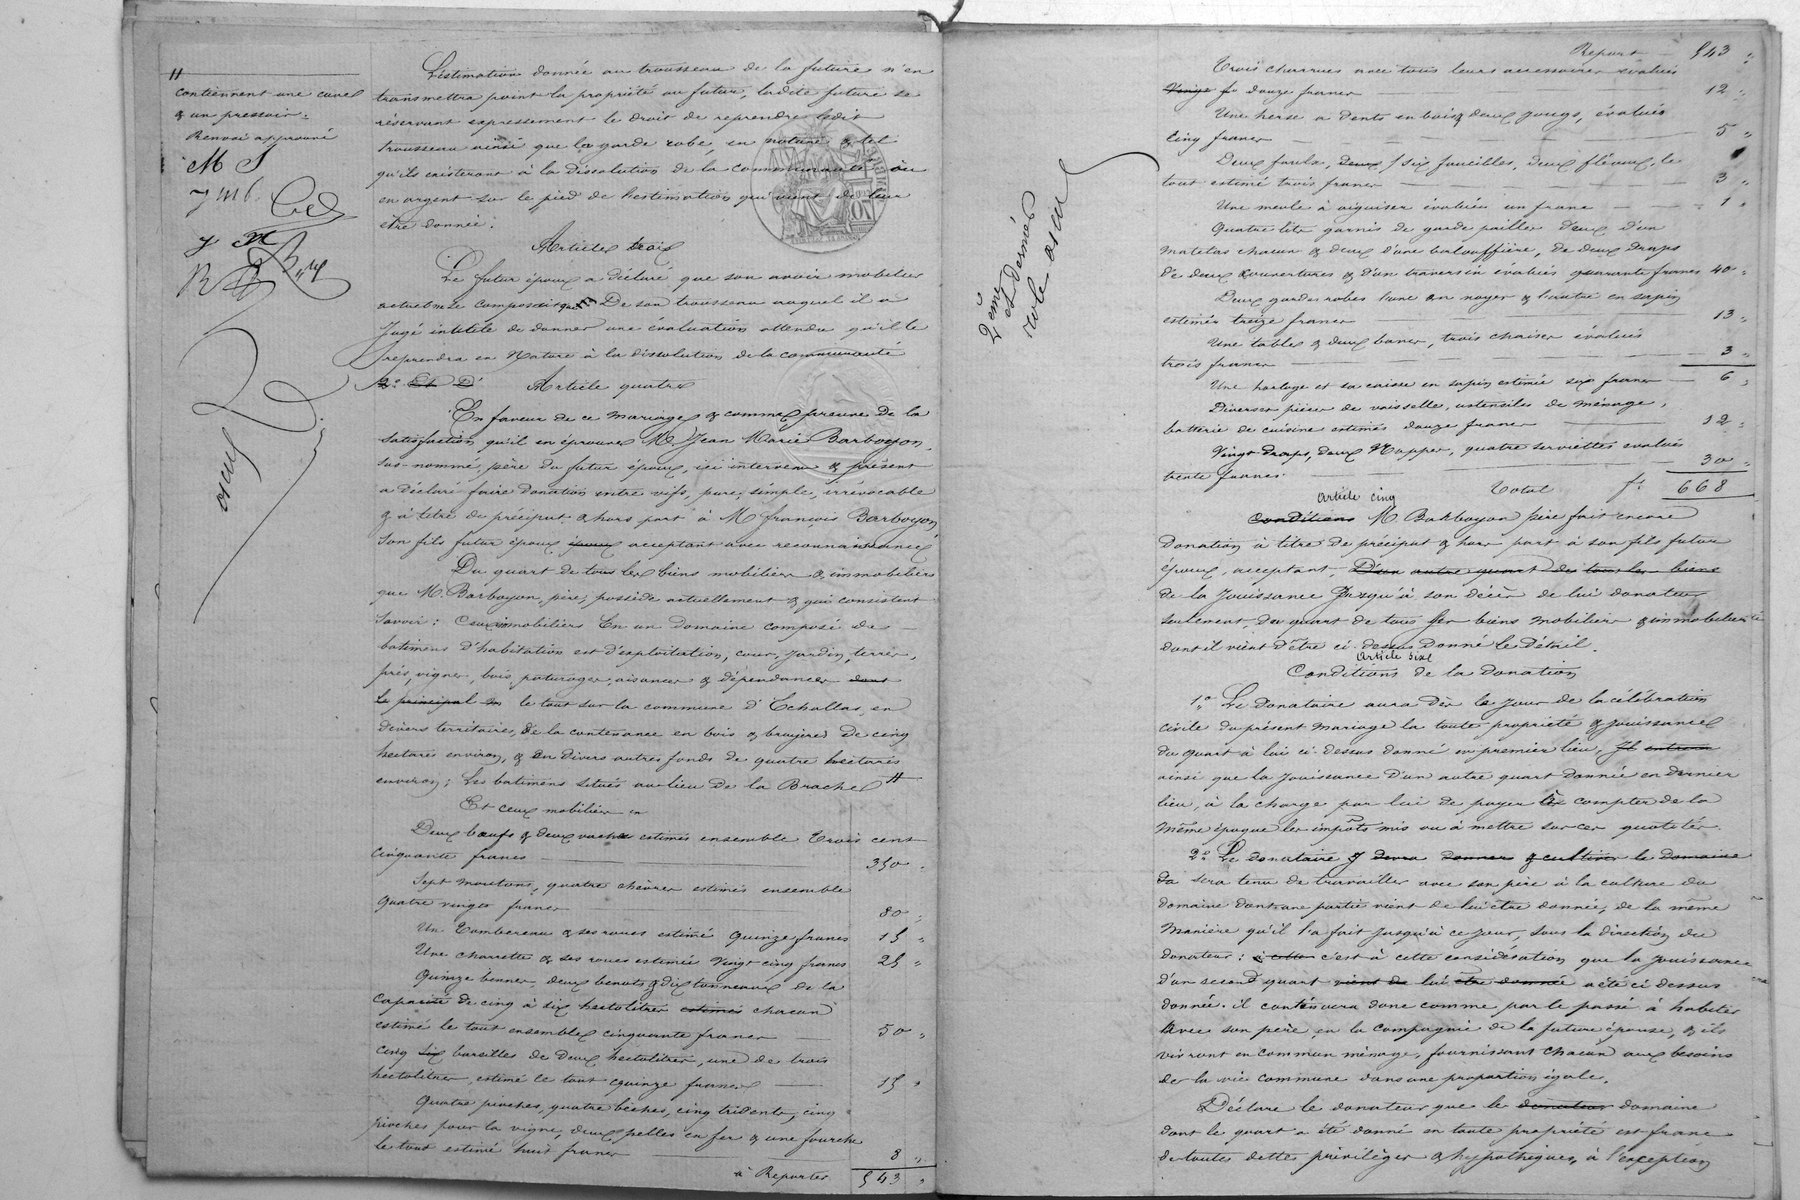 contiennent une cuve
& un pressoir.
Renvoi approuvé
M J
J M B.
L'estimation donnée au trousseau de la future n'en
transmettra point la propriété au futur, ladite future se
réservant expressement le droit de reprendre ledit
trousseau ainsi que la garde robe, en nature & tel
qu'ils existeront à la dissolution de la communauté ou
en argent sur le pied de l'estimation qui vient de leur
être donnée.
Article trois
Le futur époux a déclaré que son avoir mobilier
actuel ne se composait que De son trousseau auquel il a
Jugé inutile de donner une évaluation attendu qu'il le
reprendra en Nature à la dissolution de la communauté
2° Et D'
Article quatre
En faveur de ce mariage & comme preuve de la
satisfaction qu'il en éprouve M. Jean Marie Barboyon,
sus-nommé, père du futur époux, ici intervenu & présent
a déclaré faire Donation entre vifs, pure, simple, irrévocable
& à titre de préciput & hors part à M. françois Barboyon
son fils futur époux époux acceptant avec reconnaissance
Du quart de tous les biens mobiliers & immobiliers
que M. Barboyon, père, possède actuellement & qui consistent
Savoir: Ceux immobiliers En un Domaine composé de
batimens d'habitation est d'exploitation, cour, jardin, terres,
prés, vignes, bois, paturages, aisances & dépendances dont
le principal le tout sur la commune d'Echallas, en
divers territoires, De la contenance en bois & bruyères De cinq
hectares environ, & En divers autres fonds de quatre hectares
environ; Les batimens situés au lieu De la Brache
Et ceux mobiliers en
Deux bœufs & deux vaches estimés ensemble Trois cent
cinquante francs 350 "
Sept moutons, quatre chèvres estimés ensemble
quatre vingts francs 80 "
Un Tombereau & ses roues estimé quinze francs 15 "
Une charrette & ses roues estimée Vingt cinq francs 25 "
Quinze bennes deux benots & dix tonneaux de la
capacité de cinq à six hectolitres estimés chacun
estimé le tout ensemble cinquante francs 50 "
cinq six bareilles de Deux hectolitres, une de trois
hectolitres, estimé le tout quinze francs 15 "
Quatre pioches, quatre bêches, cinq tridents, cinq
pioches pour la vigne, deux pelles en fer & une fourche
le tout estimé huit francs 8 "
à Reporter 543 "
2ème
et Dernier
role
Report 543 "
Trois charrues avec tous leurs accessoires évalués
douze francs 12 "
Une herse a dents en bois & deux jougs, évalués
Cinq francs 5 "
Deux faulx, deux six faucilles, deux fléaux, le
tout estimé trois francs 3 "
Une meule à aiguiser évaluée un franc 1 "
Quatre lits garnis de garde pailles Deux d'un
matelas chacun & deux d'une balouffière, de deux draps
de deux couvertures & d'un traversin évalués quarante francs 40 "
Deux gardes robes l'une en noyer & l'autre en sapin
estimés treize francs 13 "
Une table & deux bancs, trois chaises évalués
trois francs 3 "
Une horloge et sa caisse en sapin estimée six francs 6 "
Diverses pièces de vaisselle, ustensiles de ménage,
batterie de cuisine estimés douze francs 12 "
Vingt draps, deux Nappes, quatre serviettes évalués
trente francs 30 "
Total fs 668
Article cinq
Conditions M. Barboyon père fait encore
Donation à titre De préciput & hors part à son fils futur
époux, acceptant, D'un autre quart des tous les biens
de la Jouissance Jusqu'à son décès de lui donateur
seulement, du quart de tous les biens mobiliers & immobiliers
dont il vient d'être ci-dessus donné le Détail.
Article six
Conditions de la Donation
1° Le Donataire aura Dès le Jour de la célébration
civile du présent Mariage la toute propriété & jouissance
du quart à lui ci-dessus donné en premier lieu,
ainsi que la Jouissance D'un autre quart donnée en dernier
lieu, à la charge par lui de payer à compter de la
même époque les impôts mis ou à mettre sur ces quotités.
2° Le Donataire devra donner & cultiver le Domaine
sera tenu de travailler avec son père à la culture du
domaine dont une partie vient de lui être donnée, de la même
Manière qu'il l'a fait Jusqu'à ce Jour, sous la direction du
donateur: c'est à cette considération que la Jouissance
d'un second quart vient de lui être donnée a été ci dessus
donnée. il continuera donc comme par le passé à habiter
avec son père, en la compagnie de la future épouse, & ils
vivront en commun ménage, fournissant chacun aux besoins
de la vie commune dans une proportion égale.
Déclare le donateur que le donateur domaine
dont le quart a été donné en toute propriété est franc
de toutes dettes privilèges & hypothèques, à l'exception